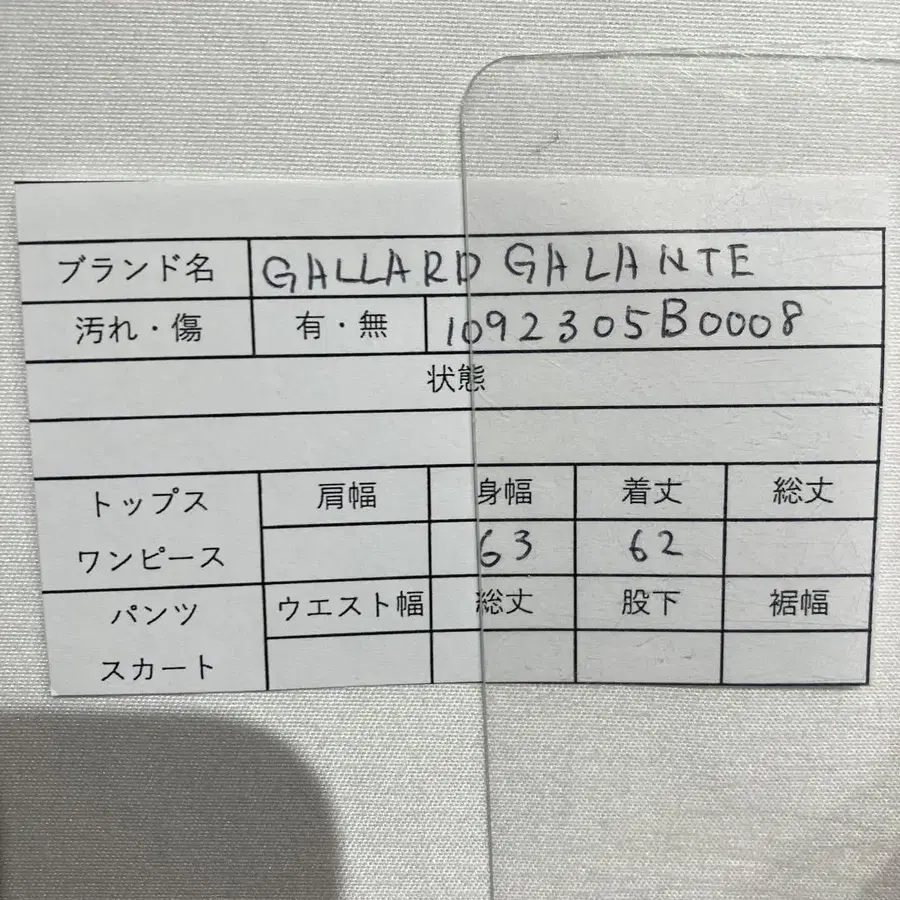 ブランド名 GALLARD GALANTE
汚れ・傷 有・無 1092305B0008
状態
トップス 肩幅 身幅 着丈 総丈
ワンピース 63 62
パンツ ウエスト幅 総丈 股下 裾幅
スカート